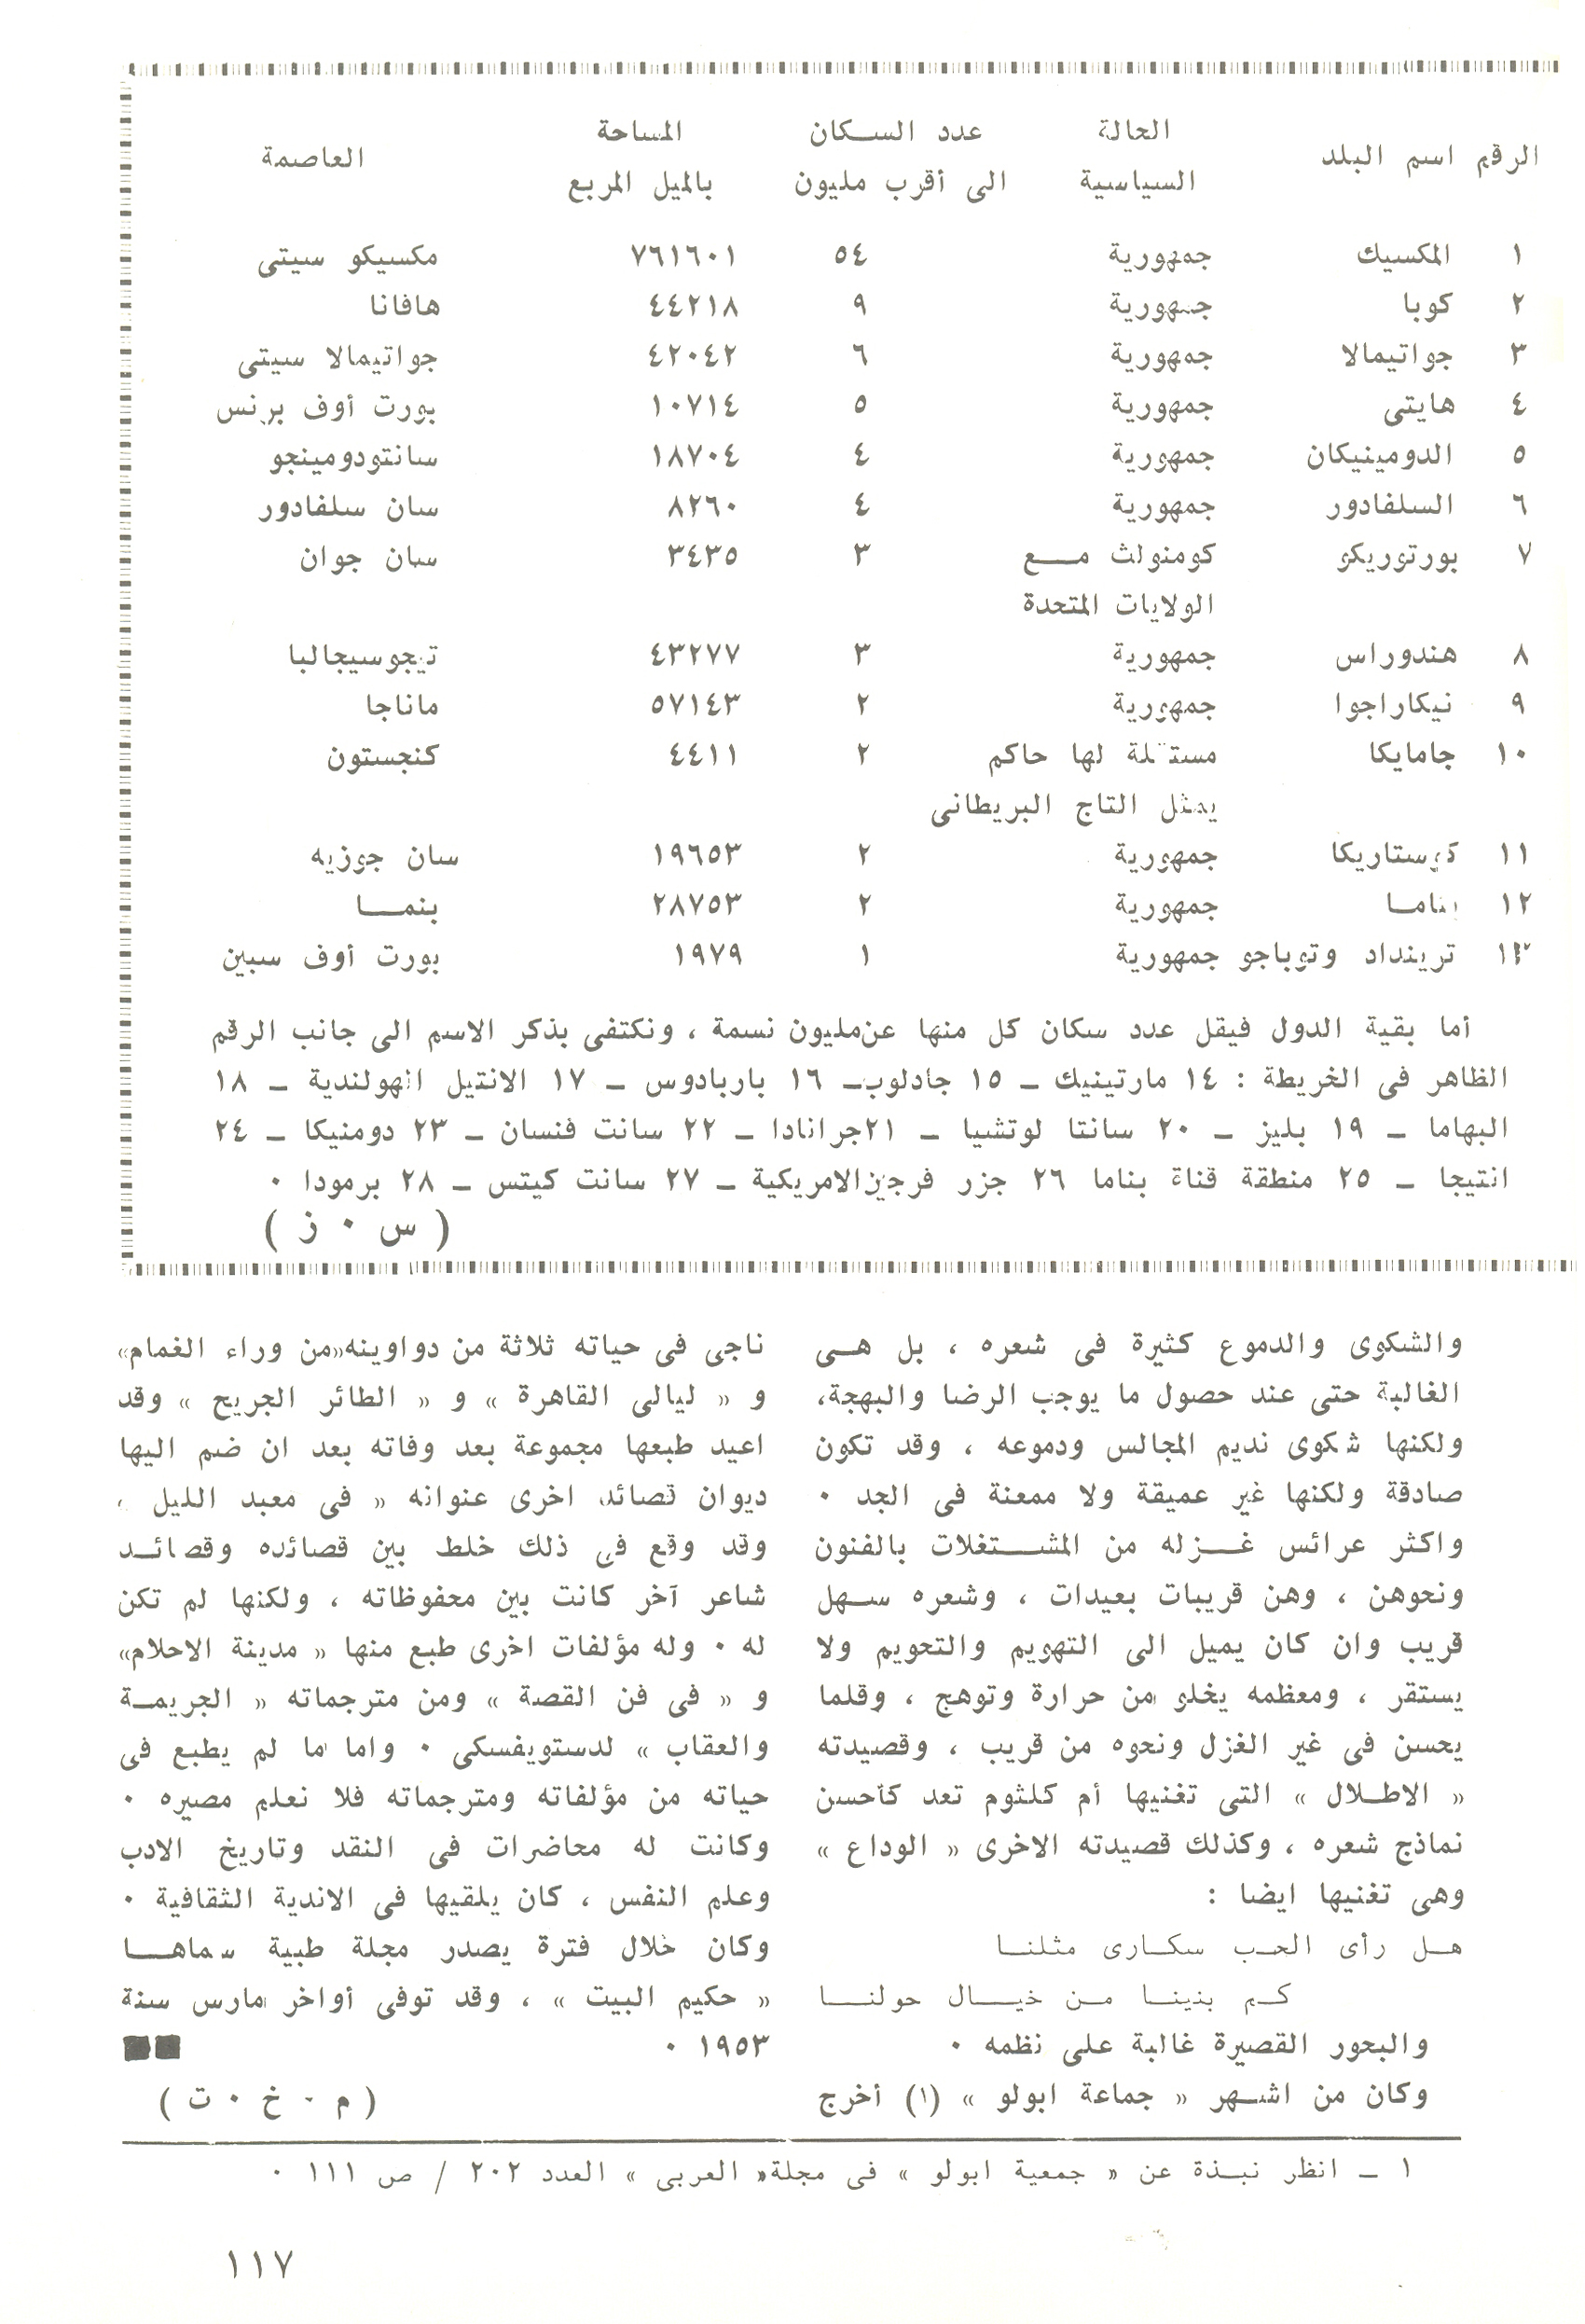 الرقم اسم البلد الحالة السياسية عدد السكان الى أقرب مليون المساحة بالميل المربع العاصمة
١ المكسيك جمهورية ٥٤ ٧٦١٦٠١ مكسيكو سيتى
٢ كوبا جمهورية ٩ ٤٤٢١٨ هافانا
٣ جواتيمالا جمهورية ٦ ٤٢٠٤٢ جواتيمالا سيتى
٤ هايتى جمهورية ٥ ١٠٧١٤ بورت أوف برنس
٥ الدومينيكان جمهورية ٤ ١٨٧٠٤ سانتودومينجو
٦ السلفادور جمهورية ٤ ٨٢٦٠ سان سلفادور
٧ بورتوريكو كومنولث مع ٣ ٣٤٣٥ سان جوان
الولايات المتحدة
٨ هندوراس جمهورية ٣ ٤٣٢٧٧ تيجوسيجالبا
٩ نيكاراجوا جمهورية ٢ ٥٧١٤٣ ماناجا
١٠ جامايكا مستقلة لها حاكم ٢ ٤٤١١ كنجستون
يمثل التاج البريطانى
١١ كوستاريكا جمهورية ٢ ١٩٦٥٣ سان جوزيه
١٢ بناما جمهورية ٢ ٢٨٧٥٣ بنما
١٣ ترينداد وتوباجو جمهورية ١ ١٩٧٩ بورت أوف سبين
أما بقية الدول فيقل عدد سكان كل منها عن مليون نسمة ، ونكتفى بذكر الاسم الى جانب الرقم
الظاهر فى الخريطة : ١٤ مارتينيك ــ ١٥ جادلوب ــ ١٦ باربادوس ــ ١٧ الانتيل الهولندية ــ ١٨
البهاما ــ ١٩ بليز ــ ٢٠ سانتا لوتشيا ــ ٢١ جرانادا ــ ٢٢ سانت فنسان ــ ٢٣ دومنيكا ــ ٢٤
انتيجا ــ ٢٥ منطقة قناة بناما ٢٦ جزر فرجين الامريكية ــ ٢٧ سانت كيتس ــ ٢٨ برمودا ٠
( س ٠ ز )
والشكوى والدموع كثيرة فى شعره ، بل هى
الغالبة حتى عند حصول ما يوجب الرضا والبهجة،
ولكنها شكوى نديم المجالس ودموعه ، وقد تكون
صادقة ولكنها غير عميقة ولا ممعنة فى الجد ٠
واكثر عرائس غزله من المشتغلات بالفنون
ونحوهن ، وهن قريبات بعيدات ، وشعره سهل
قريب وان كان يميل الى التهويم والتحويم ولا
يستقر ، ومعظمه يخلو من حرارة وتوهج ، وقلما
يحسن فى غير الغزل ونحوه من قريب ، وقصيدته
« الاطلال » التى تغنيها أم كلثوم تعد كأحسن
نماذج شعره ، وكذلك قصيدته الاخرى « الوداع »
وهى تغنيها ايضا :
هل رأى الحب سكارى مثلنا
كم بنينا من خيال حولنا
والبحور القصيرة غالبة على نظمه ٠
وكان من اشهر « جماعة ابولو » (١) أخرج
ناجى فى حياته ثلاثة من دواوينه «من وراء الغمام»
و « ليالى القاهرة » و « الطائر الجريح » وقد
اعيد طبعها مجموعة بعد وفاته بعد ان ضم اليها
ديوان قصائد اخرى عنوانه « فى معبد الليل ،
وقد وقع فى ذلك خلط بين قصائده وقصائد
شاعر آخر كانت بين محفوظاته ، ولكنها لم تكن
له ٠ وله مؤلفات اخرى طبع منها « مدينة الاحلام»
و « فى فن القصة » ومن مترجماته « الجريمة
والعقاب » لدستويفسكى ٠ واما ما لم يطبع فى
حياته من مؤلفاته ومترجماته فلا نعلم مصيره ٠
وكانت له محاضرات فى النقد وتاريخ الادب
وعلم النفس ، كان يلقيها فى الاندية الثقافية ٠
وكان خلال فترة يصدر مجلة طبية سماها
« حكيم البيت » ، وقد توفى أواخر مارس سنة
١٩٥٣ ٠
( م ٠ خ ٠ ت )
١ ــ انظر نبذة عن « جمعية ابولو » فى مجلة « العربى » العدد ٢٠٢ / ص ١١١ ٠
١١٧